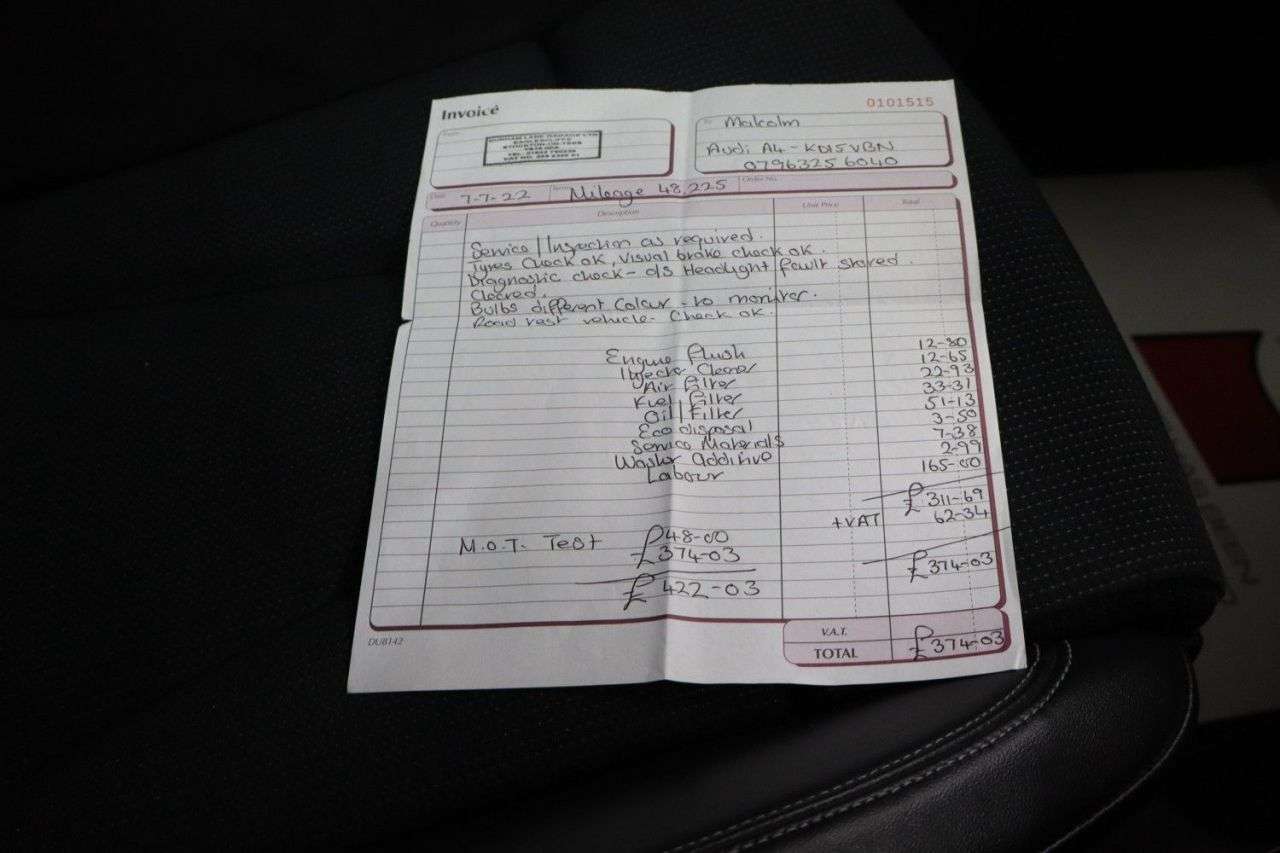 Invoice
0101515
To
Malcolm
Audi A4 - KD15VBN
0796325 6040
DURHAM LANE GARAGE LTD
EAGLESCLIFFE
STOCKTON-ON-TEES
Date 7-7-22
Mileage 48,225
Order No.
Quantity Description Unit Price Total
Service/Inspection as required.
Tyres Check ok, Visual brake check ok.
Diagnostic check - o/s Headlight fault stored.
Cleared.
Bulbs different Colour - to monitor.
Road test vehicle - Check ok.
Engine flush 12-80
Injector Cleaner 12-65
Air filter 22-93
Fuel filter 33-31
Oil/Filter 51-13
Eco disposal 3-50
Service Materials 7-38
Washer Additive 2-99
Labour 165-00
£311-69
+VAT 62-34
M.O.T. Test £48-00
£374-03 £374-03
£422-03
V.A.T.
TOTAL £374-03
DUB142